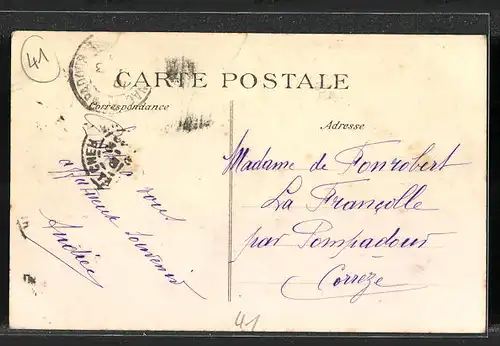 41
CARTE POSTALE
Correspondance
Adresse
vous
affectueux souvenir
Andrée
Madame de Fonrobert
La Françolle
par Pompadour
Corrèze
41